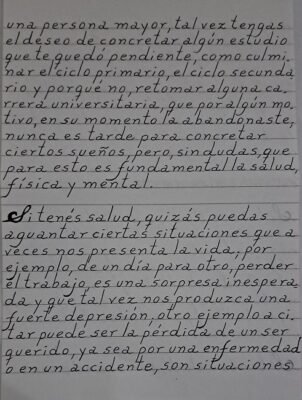 una persona mayor, tal vez tengas
el deseo de concretar algún estudio
que te quedó pendiente, como culmi
nar el ciclo primario, el ciclo secunda
rio y porqué no, retomar alguna ca.
rrera universitaria, que por algún mo.
tivo, en su momento la abandonaste,
nunca es tarde para concretar
ciertos sueños, pero, sin dudas, que
para esto es fundamental la salud,
física y mental.
Si tenés salud, quizás puedas
aguantar ciertas situaciones que a
veces nos presenta la vida, por
ejemplo, de un día para otro, perder
el trabajo, es una sorpresa inespera.
da y que tal vez nos produzca una
fuerte depresión, otro ejemplo a ci.
tar puede ser la pérdida de un ser
querido, ya sea por una enfermedad
o en un accidente, son situaciones